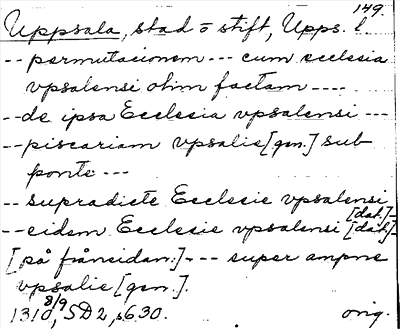 149.
Uppsala, stad o stift, Upps. l.
-- permutacionem --- cum ecclesia
vpsalensi olim factam ----
-- de ipsa Ecclesia vpsalensi ---
-- piscariam vpsalie [gen.] sub
ponte ---
-- supradicte Ecclesie vpsalensi
[dat.]--
-- eidem Ecclesie vpsalensi [dat.]--
[på frånsidan:]--- super ampne
vpsalie [gen.].
1310 8/9, SD 2, s. 630. orig.